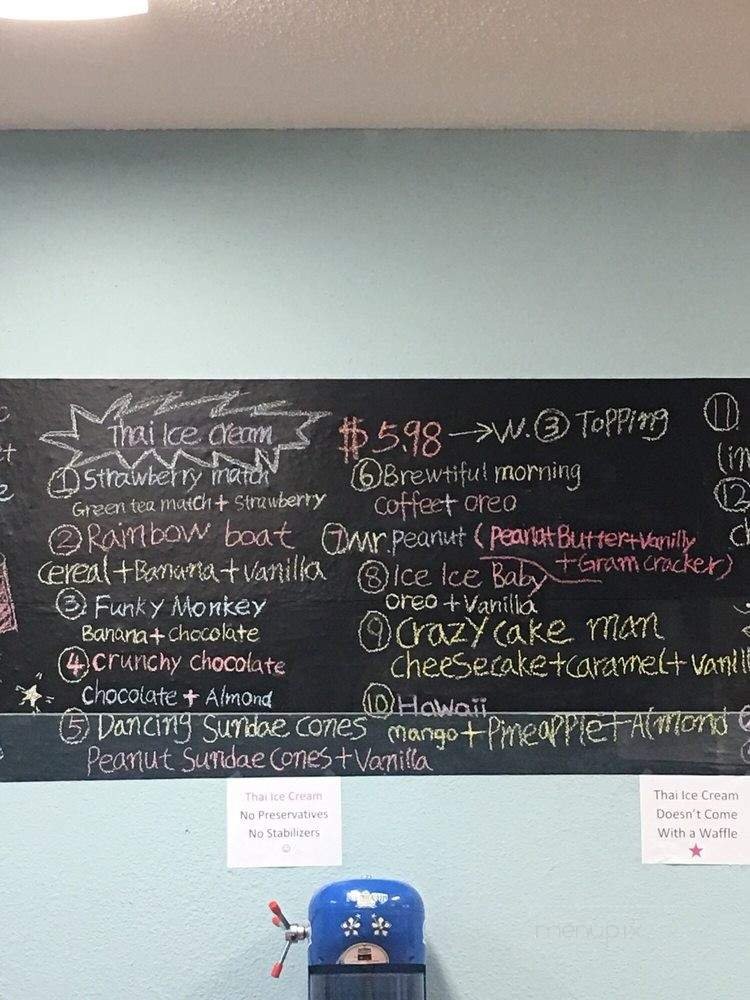 Thai Ice cream
$5.98 → W. ③ Topping
① Strawberry match
Green tea match + Strawberry
② Rainbow boat
cereal + Banana + vanilla
③ Funky Monkey
Banana + chocolate
④ crunchy chocolate
chocolate + Almond
⑤ Dancing Sundae cones
Peanut Sundae cones + Vanilla
⑥ Brewtiful morning
coffee + oreo
⑦ Mr. Peanut (Peanut Butter + Vanilly
+ Gram cracker)
⑧ Ice Ice Baby
oreo + Vanilla
⑨ Crazy cake man
cheesecake + caramel + vanill
⑩ Hawaii
mango + Pineapple + Almond
⑪
(in
⑫
Thai Ice Cream
No Preservatives
No Stabilizers
☺
Thai Ice Cream
Doesn't Come
With a Waffle
★
menupix